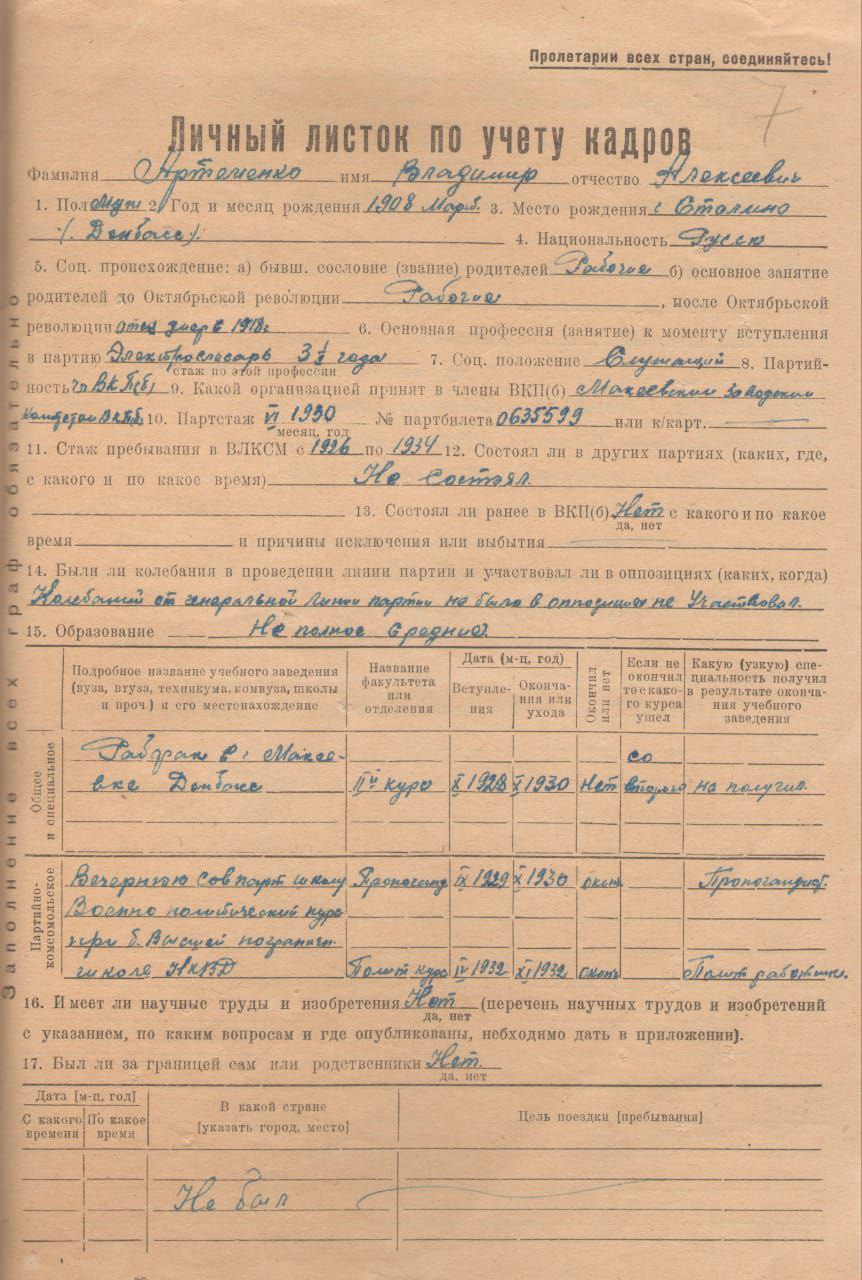 Пролетарии всех стран, соединяйтесь!
7
Личный листок по учету кадров
Фамилия Артеменко имя Владимир отчество Алексеевич
1. Пол Муж 2. Год и месяц рождения 1908 Март. 3. Место рождения г Сталино
(Донбасс). 4. Национальность Русск
5. Соц. происхождение: а) бывш. сословие (звание) родителей Рабочие б) основное занятие
родителей до Октябрьской революции Рабочие, после Октябрьской
революции отец умер в 1918г 6. Основная профессия (занятие) к моменту вступления
в партию Электрослесарь 3½ года 7. Соц. положение Служащий 8. Партий-
стаж по этой профессии
ность чл ВКП(б) 9. Какой организацией принят в члены ВКП(б) Макеевским заводским
комитетом ВКПб, 10. Партстаж VI 1930 № партбилета 0635599 или к/карт.
месяц, год
11. Стаж пребывания в ВЛКСМ с 1926 по 1934 12. Состоял ли в других партиях (каких, где,
с какого и по какое время) Не состоял.
13. Состоял ли ранее в ВКП(б) Нет с какого и по какое
да, нет
время и причины исключения или выбытия
14. Были ли колебания в проведении линии партии и участвовал ли в оппозициях (каких, когда)
Колебаний от генеральной линии партии не было в оппозициях не участвовал.
15. Образование Не полное среднее.
Подробное название учебного заведения (вуза, втуза, техникума, комвуза, школы и проч.) и его местонахождение
Название факультета или отделения
Дата (м-ц, год)
Вступле-ния
Окончания или ухода
Окончил или нет
Если не окончил то с како-го курса ушел
Какую (узкую) спе-циальность получил в результате оконча-ния учебного заведения
Общее и специальное
Рабфак в г. Макее- со
вке Донбасс II й курс X 1928 X 1930 Нет второго не получил.
Партийно-комсомольское
Вечернюю совпарт школу Пропоганд. IX 1929 X 1930 оконч. Пропогандист.
Военно политический курс
при б. Высшей погранич.
школе НКВД Полит курс IV 1932 XI 1932 оконч Полит работник.
16. Имеет ли научные труды и изобретения Нет (перечень научных трудов и изобретений
да, нет
с указанием, по каким вопросам и где опубликованы, небходимо дать в приложении).
17. Был ли за границей сам или родственники Нет.
да, нет
Дата [м-ц, год]
С какого времени
По какое время
В какой стране [указать город, место]
Цель поездки [пребывания]
Не был
Заполнение всех граф обязательно